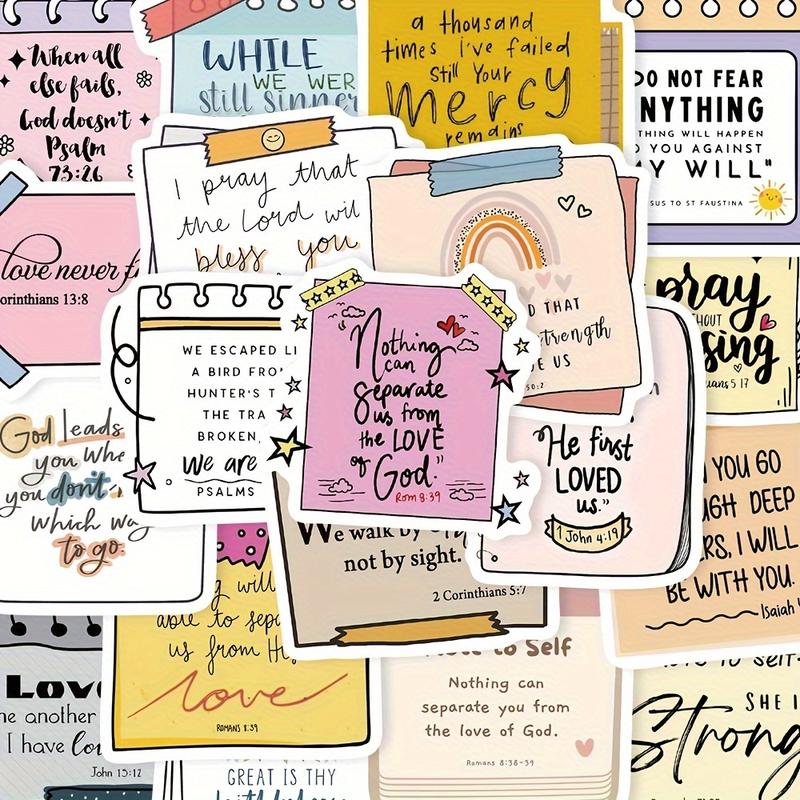 When all
else fails,
God doesn't
Psalm
73:26
WHILE
WE WERE
still sinner
a thousand
times i've failed
still Your
Mercy
remains
DO NOT FEAR
ANYTHING
THING WILL HAPPEN
YOU AGAINST
MY WILL"
SUS TO ST FAUSTINA
I pray that
the Lord wil
bless you
love never f
orinthians 13:8
D THAT
strength
E US
50:2
pray
OUT
sing
uans 5 17
WE ESCAPED LI
A BIRD FRO
HUNTER'S T
THE TRA
BROKEN,
We are
PSALMS
Nothing
can
separate
us from
the LOVE
of God."
Rom 8:39
He first
LOVED
us."
1 John 4:19
God leads
you whe
you don't
which way
to go.
YOU GO
UGH DEEP
ERS, I WILL
BE WITH YOU.
Isaiah
We walk by
not by sight.
2 Corinthians 5:7
g will
able to sepa
us from His
love
ROMANS 8:39
Note to Self
Nothing can
separate you from
the love of God.
Romans 8:38-39
Love
ne another
I have lo
John 15:12
GREAT IS THY
faithfulness
note to self:
SHE I
Strong